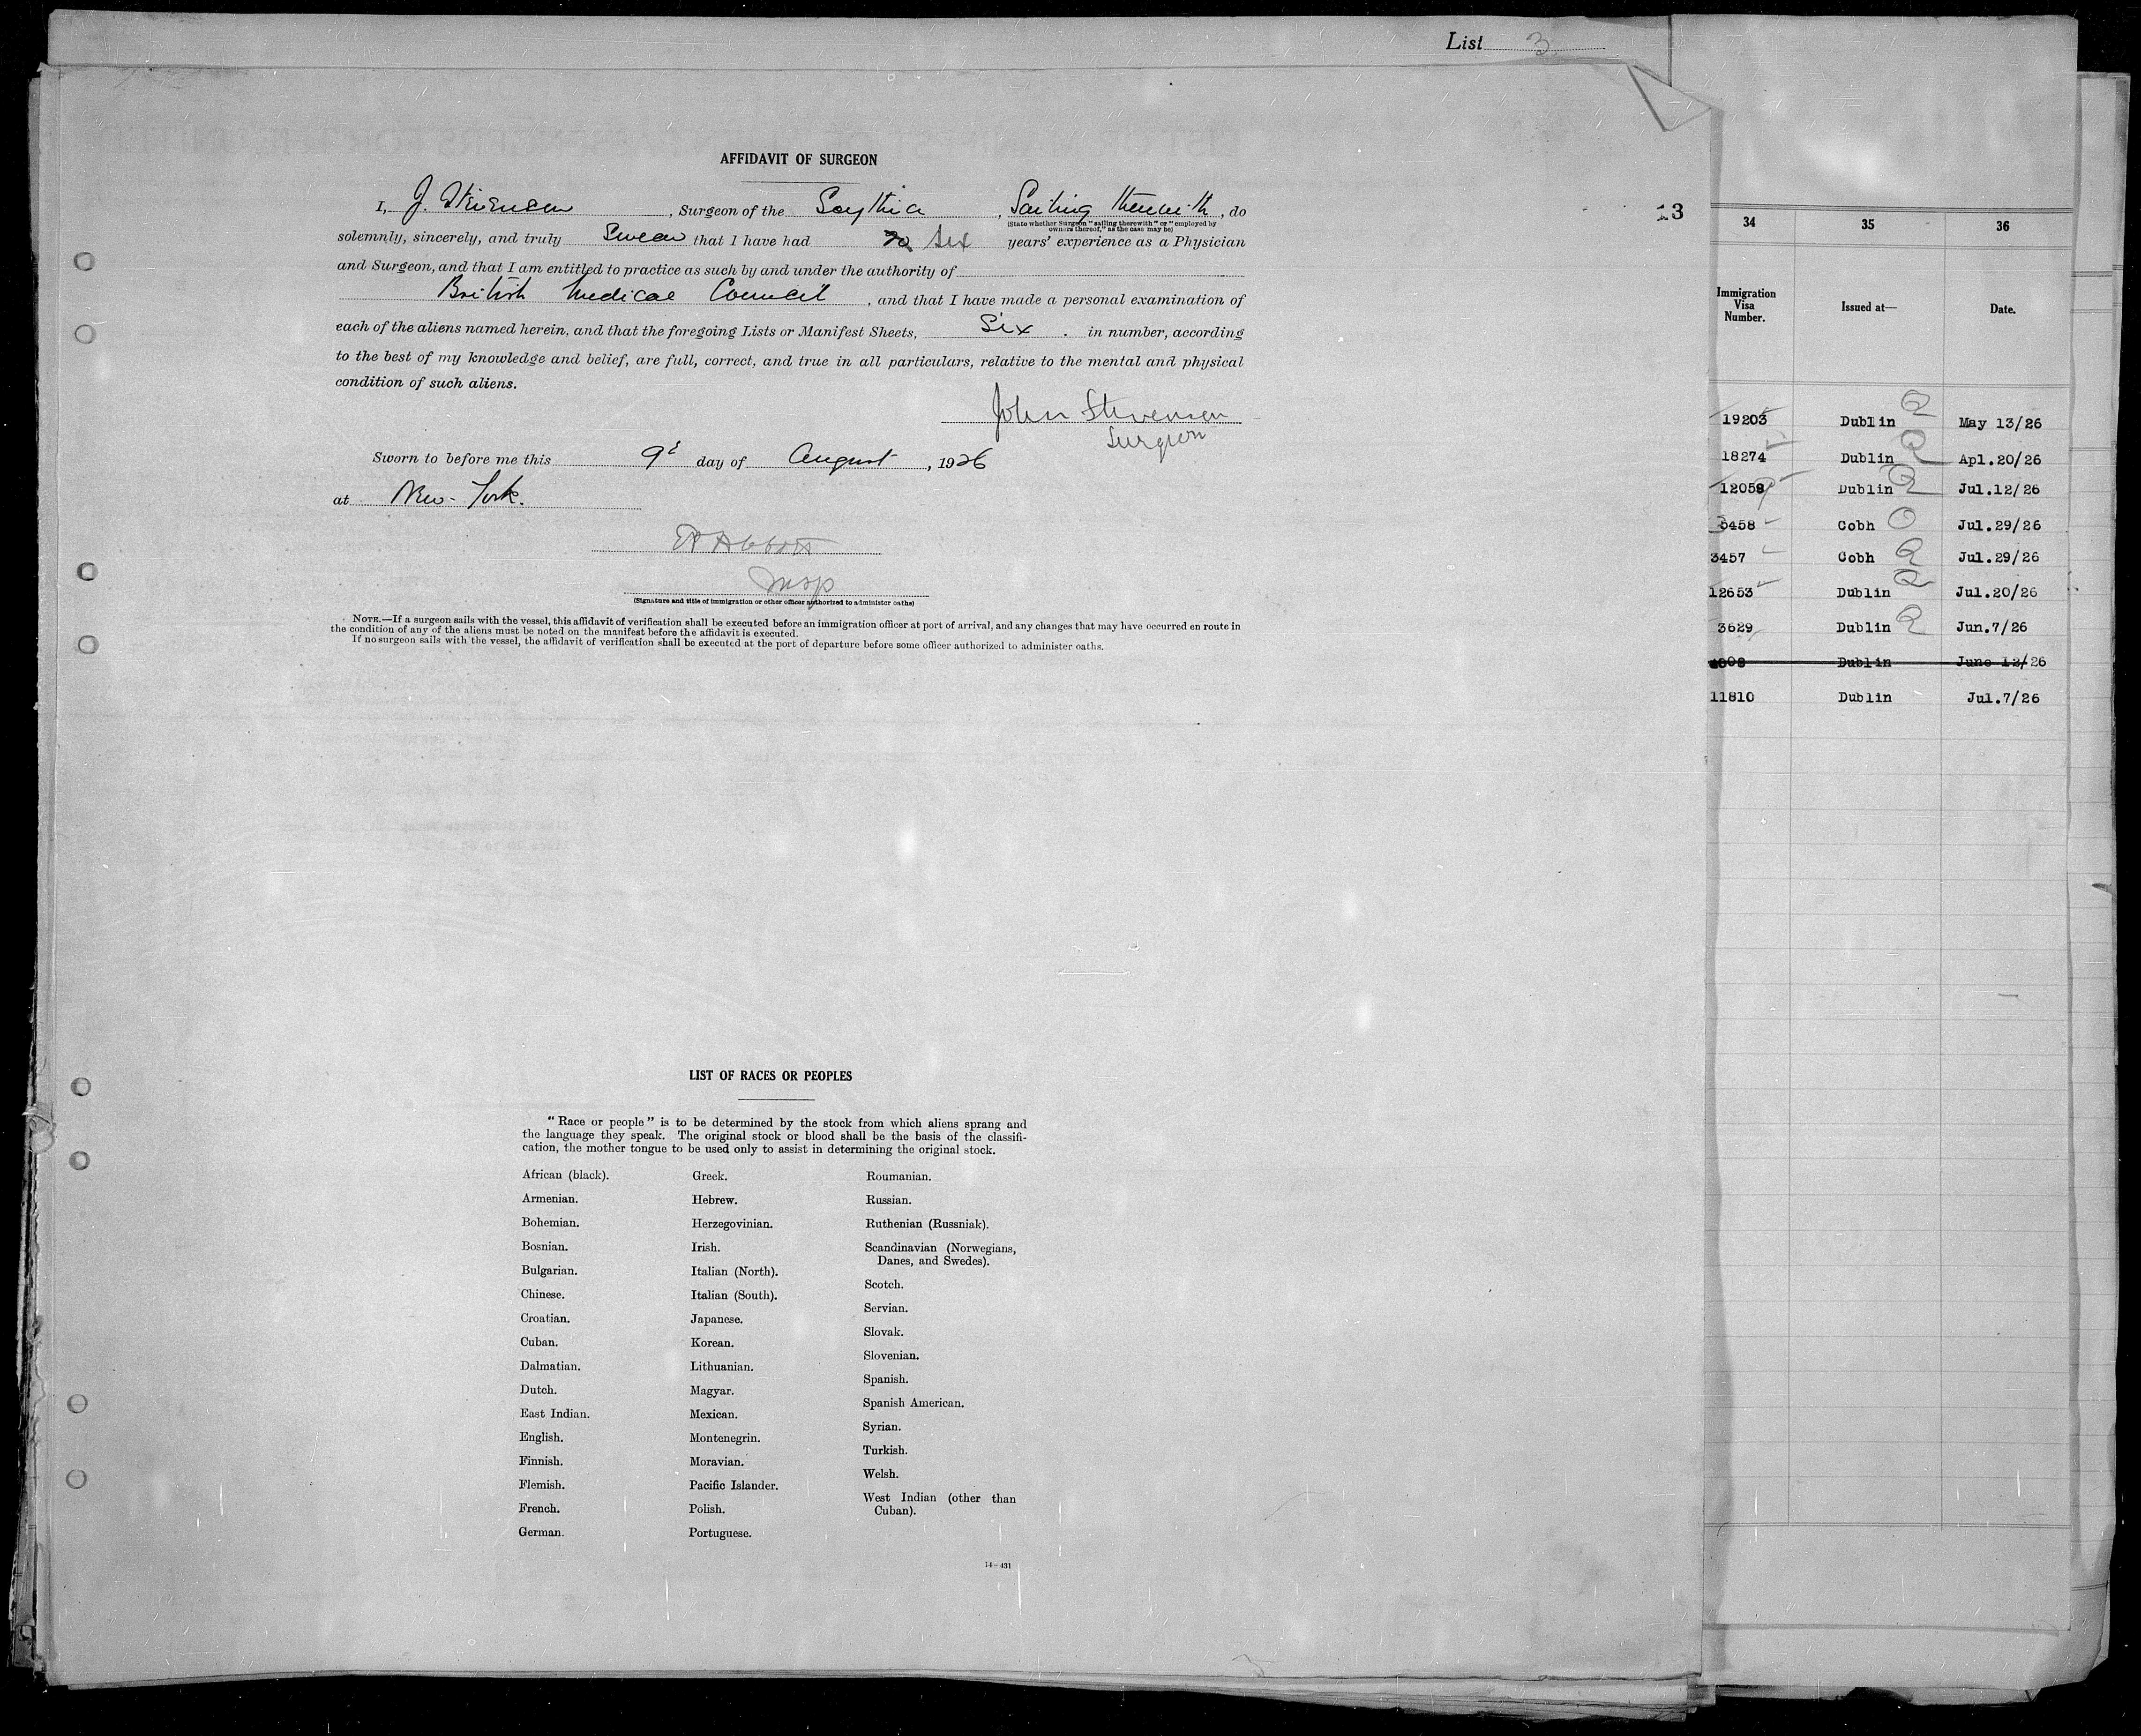 List 3
AFFIDAVIT OF SURGEON
I, J. Stevenson, Surgeon of the Scythia, Sailing therewith, do
(State whether Surgeon "sailing therewith" or "employed by
owners thereof," as the case may be)
solemnly, sincerely, and truly Swear that I have had Six years' experience as a Physician
and Surgeon, and that I am entitled to practice as such by and under the authority of
British Medical Council, and that I have made a personal examination of
each of the aliens named herein, and that the foregoing Lists or Manifest Sheets, Six in number, according
to the best of my knowledge and belief, are full, correct, and true in all particulars, relative to the mental and physical
condition of such aliens.
John Stevenson
Surgeon
Sworn to before me this 9 day of August, 1926
at New-York.
Insp
(Signature and title of immigration or other officer authorized to administer oaths)
NOTE.—If a surgeon sails with the vessel, this affidavit of verification shall be executed before an immigration officer at port of arrival, and any changes that may have occurred en route in
the condition of any of the aliens must be noted on the manifest before the affidavit is executed.
If no surgeon sails with the vessel, the affidavit of verification shall be executed at the port of departure before some officer authorized to administer oaths.
LIST OF RACES OR PEOPLES
"Race or people" is to be determined by the stock from which aliens sprang and
the language they speak. The original stock or blood shall be the basis of the classifi-
cation, the mother tongue to be used only to assist in determining the original stock.
African (black).
Armenian.
Bohemian.
Bosnian.
Bulgarian.
Chinese.
Croatian.
Cuban.
Dalmatian.
Dutch.
East Indian.
English.
Finnish.
Flemish.
French.
German.
Greek.
Hebrew.
Herzegovinian.
Irish.
Italian (North).
Italian (South).
Japanese.
Korean.
Lithuanian.
Magyar.
Mexican.
Montenegrin.
Moravian.
Pacific Islander.
Polish.
Portuguese.
Roumanian.
Russian.
Ruthenian (Russniak).
Scandinavian (Norwegians,
Danes, and Swedes).
Scotch.
Servian.
Slovak.
Slovenian.
Spanish.
Spanish American.
Syrian.
Turkish.
Welsh.
West Indian (other than
Cuban).
14—431
13
34 35 36
Immigration
Visa
Number.
Issued at—
Date.
19203 Dublin May 13/26
18274 Dublin Apl.20/26
12059 Dublin Jul.12/26
3458 Cobh Jul.29/26
3457 Cobh Jul.29/26
12653 Dublin Jul.20/26
3629 Dublin Jun.7/26
Dublin June 12/26
11810 Dublin Jul.7/26